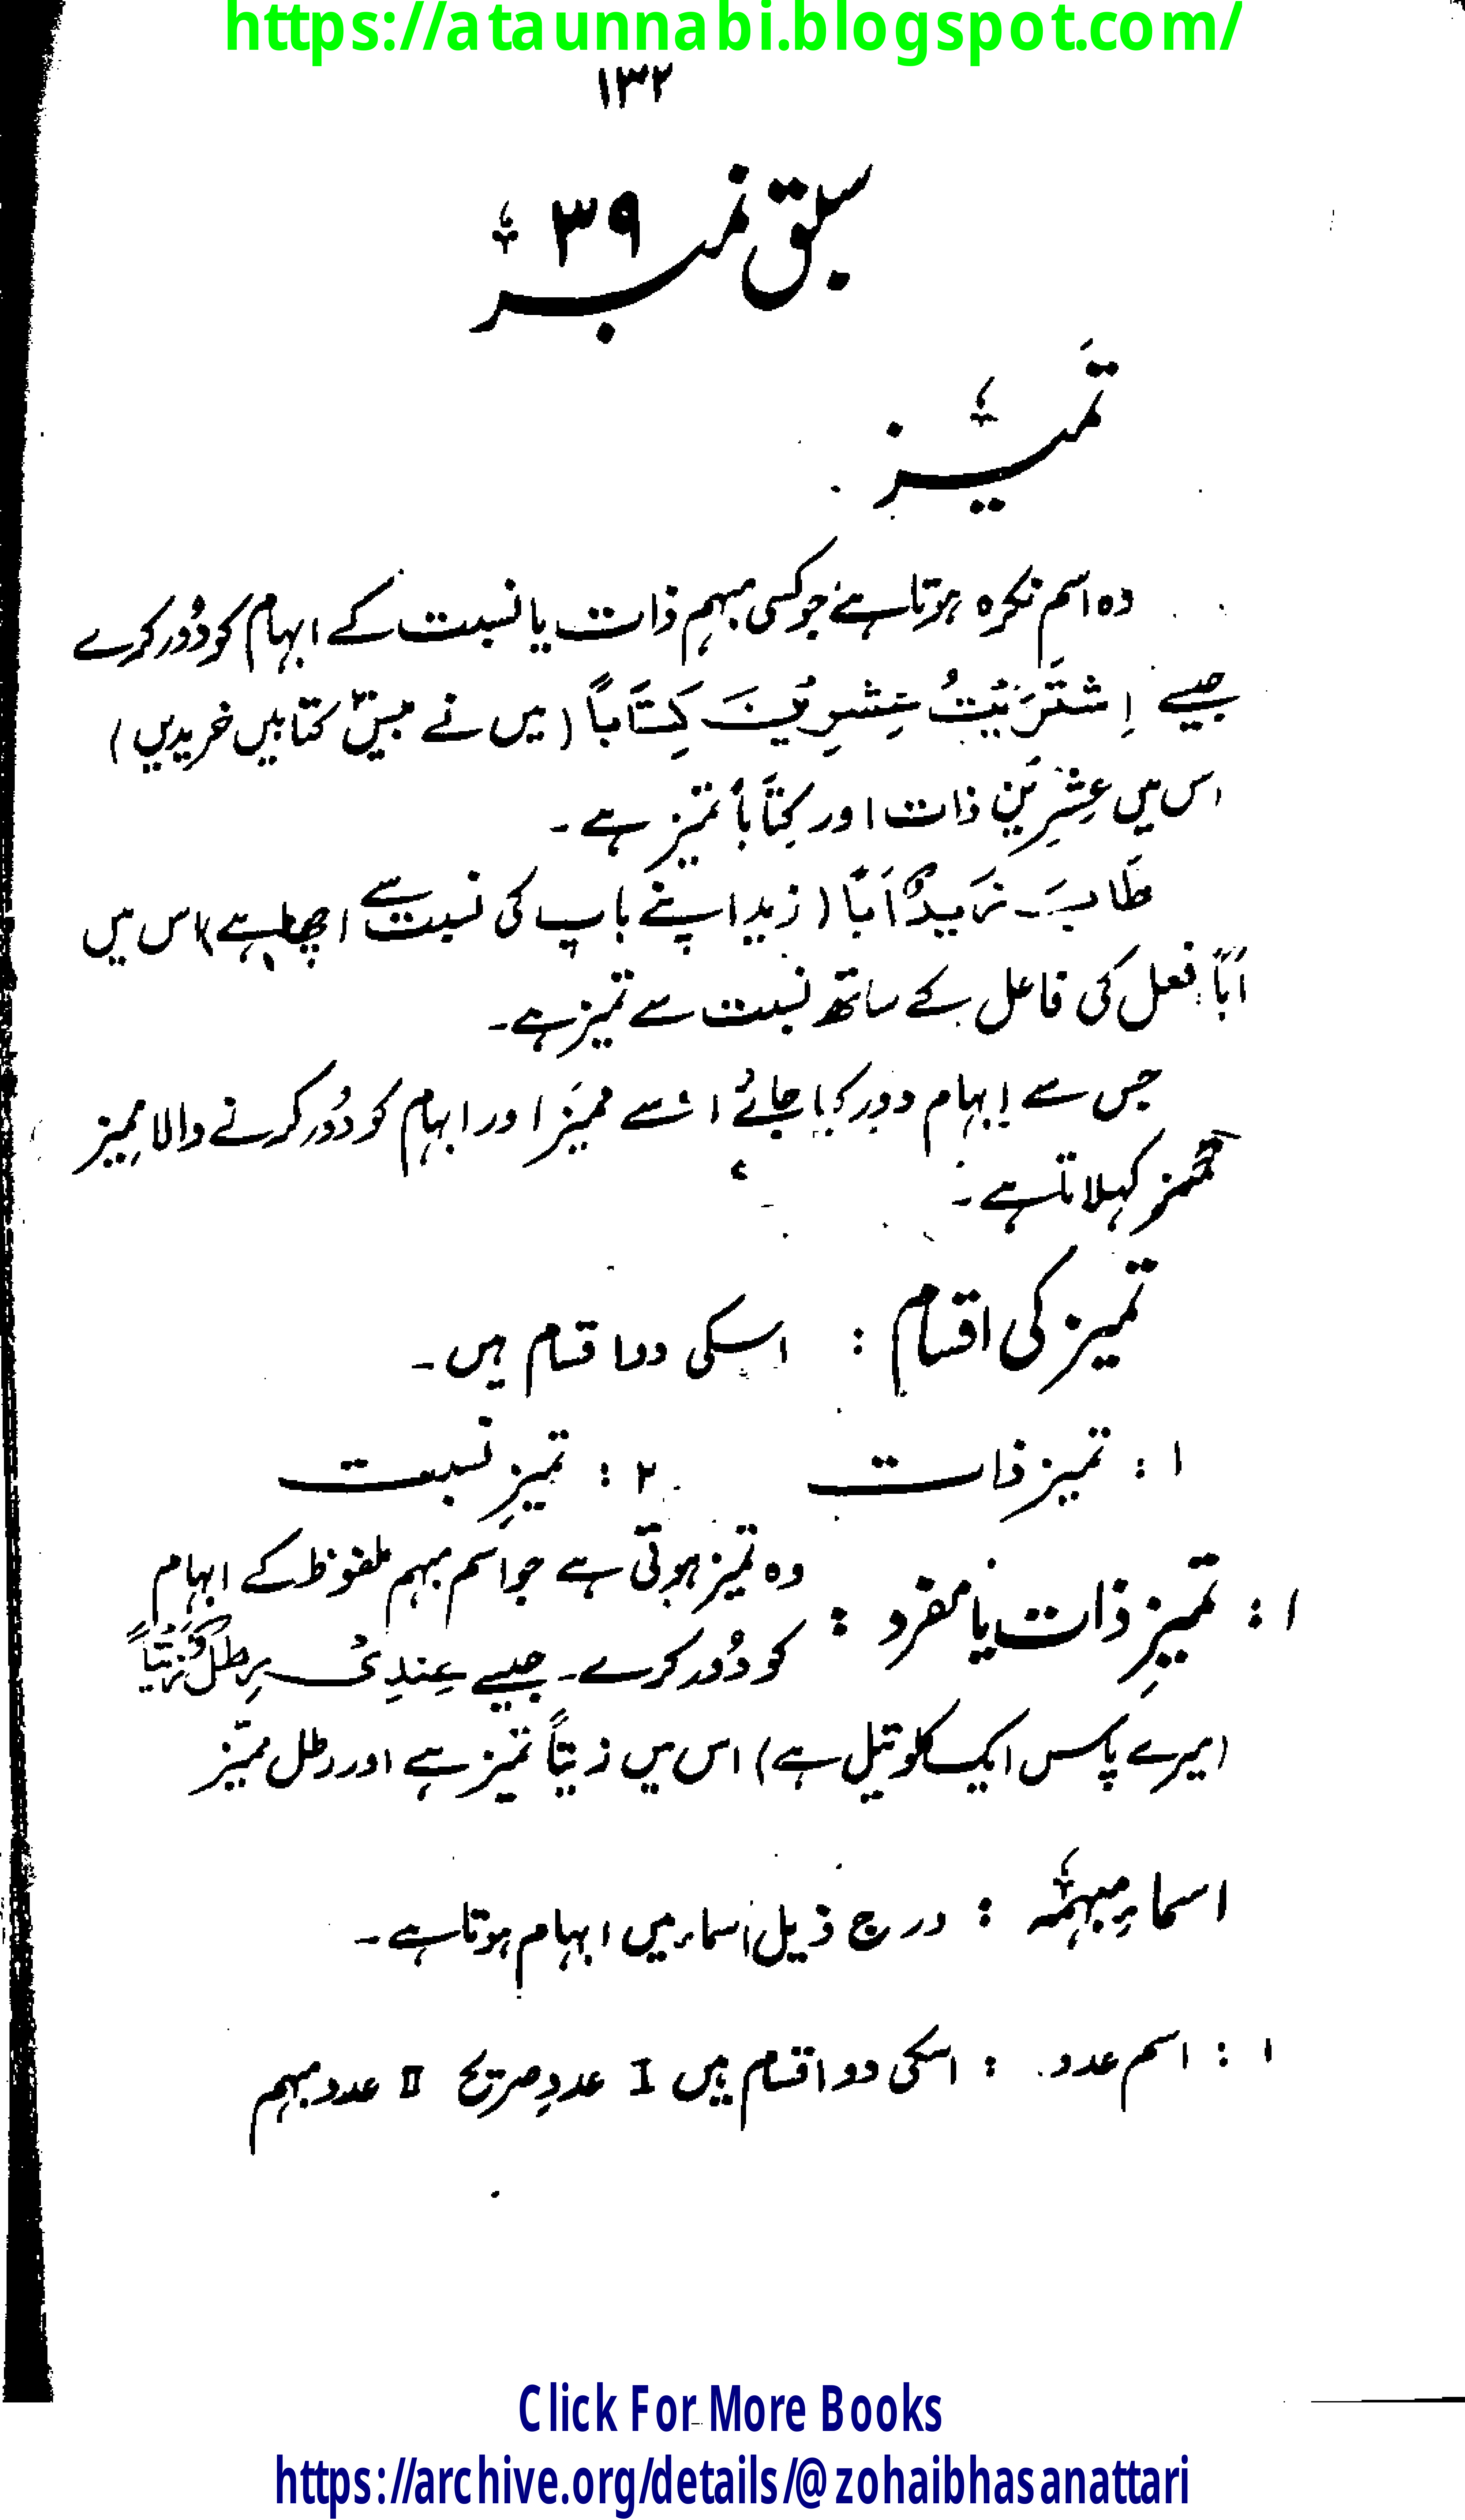 https://ataunnabi.blogspot.com/
۱۳۲
سبق نمبر ۳۹
تمیز
وہ اسم نکرہ ہوتا ہے جو کسی مبہم ذات یا نسبت کے ابہام کو دُور کرے
جیسے اِشْتَرَیْتُ عِشْرِیْنَ کِتَاباً (میں نے بیس کتابیں خریدیں)
اس میں عِشْرِیْن ذات اور کِتَاباً تمیز ہے۔
طَابَ زَیدٌ اَباً (زید اپنے باپ کی نسبت سے اچھا ہے) اس میں
اَباً فعل کی فاعل کے ساتھ نسبت سے تمیز ہے۔
جس سے اِبہام دور کیا جائے اسے ممیَز اور ابہام کو دُور کرنے والا ممیِز
کہلاتا ہے۔
تمیز کی اقسام : اسکی دو اقسام ہیں۔
۱ : تمیز ذات ۲ : تمیزِ نسبت
۱ : تمیزِ ذات یا مفرد : وہ تمیز ہوتی ہے جو اسم مبہم ملفوظ کے ابہام
کو دُور کرے۔ جیسے عِندِیْ رِطلٌ زَیْتاً
(میرے پاس ایک کلو تیل ہے) اس میں زیتاً تمیز ہے اور رطل ممیّز
اسماءِ مبہمہ : درج ذیل اسماء میں ابہام ہوتا ہے۔
۱ : اسم عدد : اسکی دو اقسام ہیں I عددِ صریح II عدد مبہم
Click For More Books
https://archive.org/details/@zohaibhasanattari